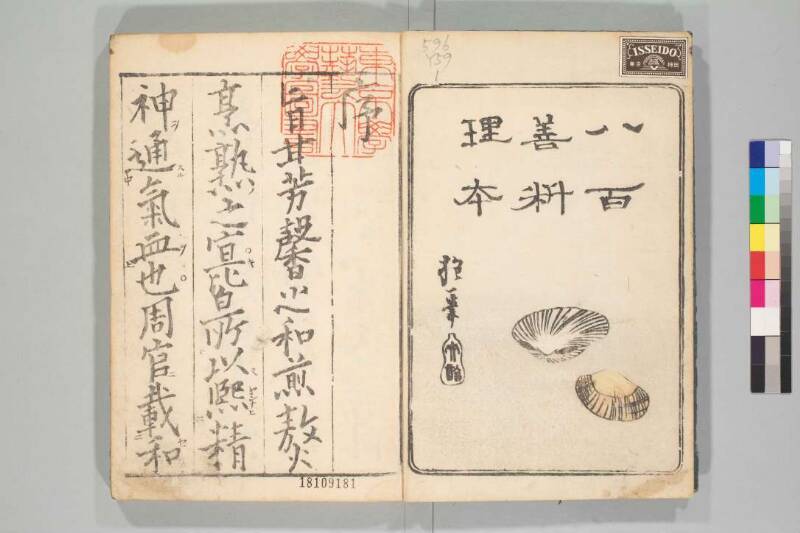 596
Y39
1
ISSEIDO
八百
善料
理本
抱一筆
序
旨甘芳馨之和煎熬火
烹熟之宜皆所以熙精
神通氣血也周官載和
18109181